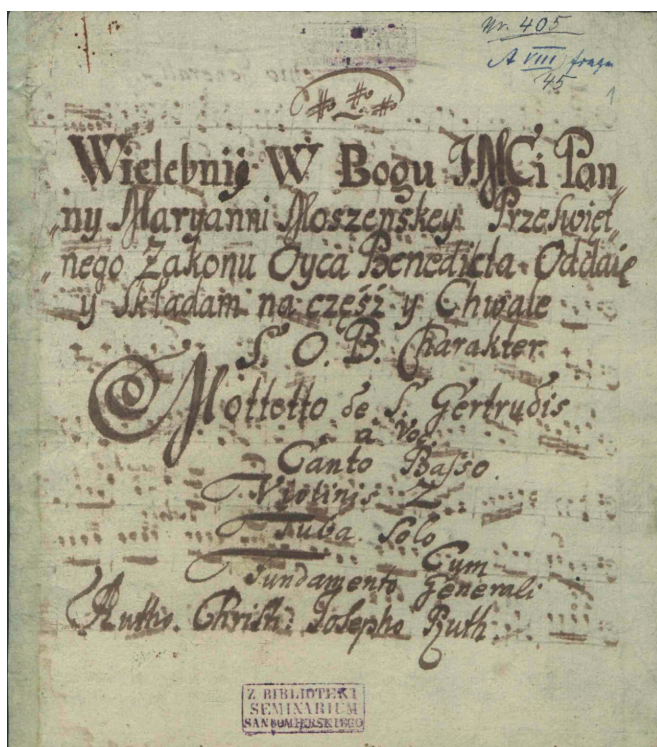 Nr. 405
A VIII fragm
45
1
Wielebnij W Bogu JMCi Pan„
„ny Maryanni Moszenskey Przeswięt„
„nego Zakonu Oyca Benedicta Oddaię
y składam na częśź y Chwałe
S. O. B. Charakter
Mottetto de S. Gertrudis
a Voc
Canto Basso.
Violinis 2
Tuba Solo
Cum
Fundamento Generali
Autho. Christ: Josepho Ruth.
Z BIBLIOTEKI
SEMINARIUM
SANDOMIERSKIEGO